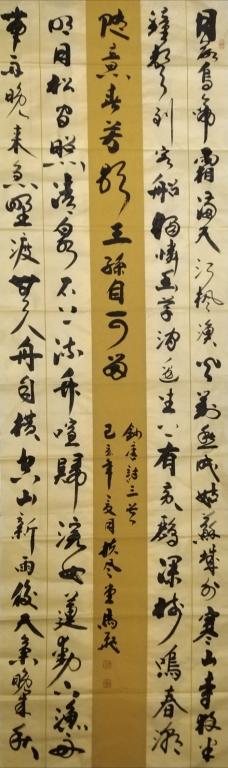 月落烏啼霜满天江枫漁火對愁眠姑蘇城外寒山寺夜半
鐘聲到客船獨憐幽草澗邊生上有黄鸝深樹鳴春潮
带雨晚来急野渡無人舟自横空山新雨後天氣晚来秋
明月松間照清泉石上流竹喧歸浣女蓮動下漁舟
随意春芳歇王孫自可留
錄唐詩三首
己丑年夏月